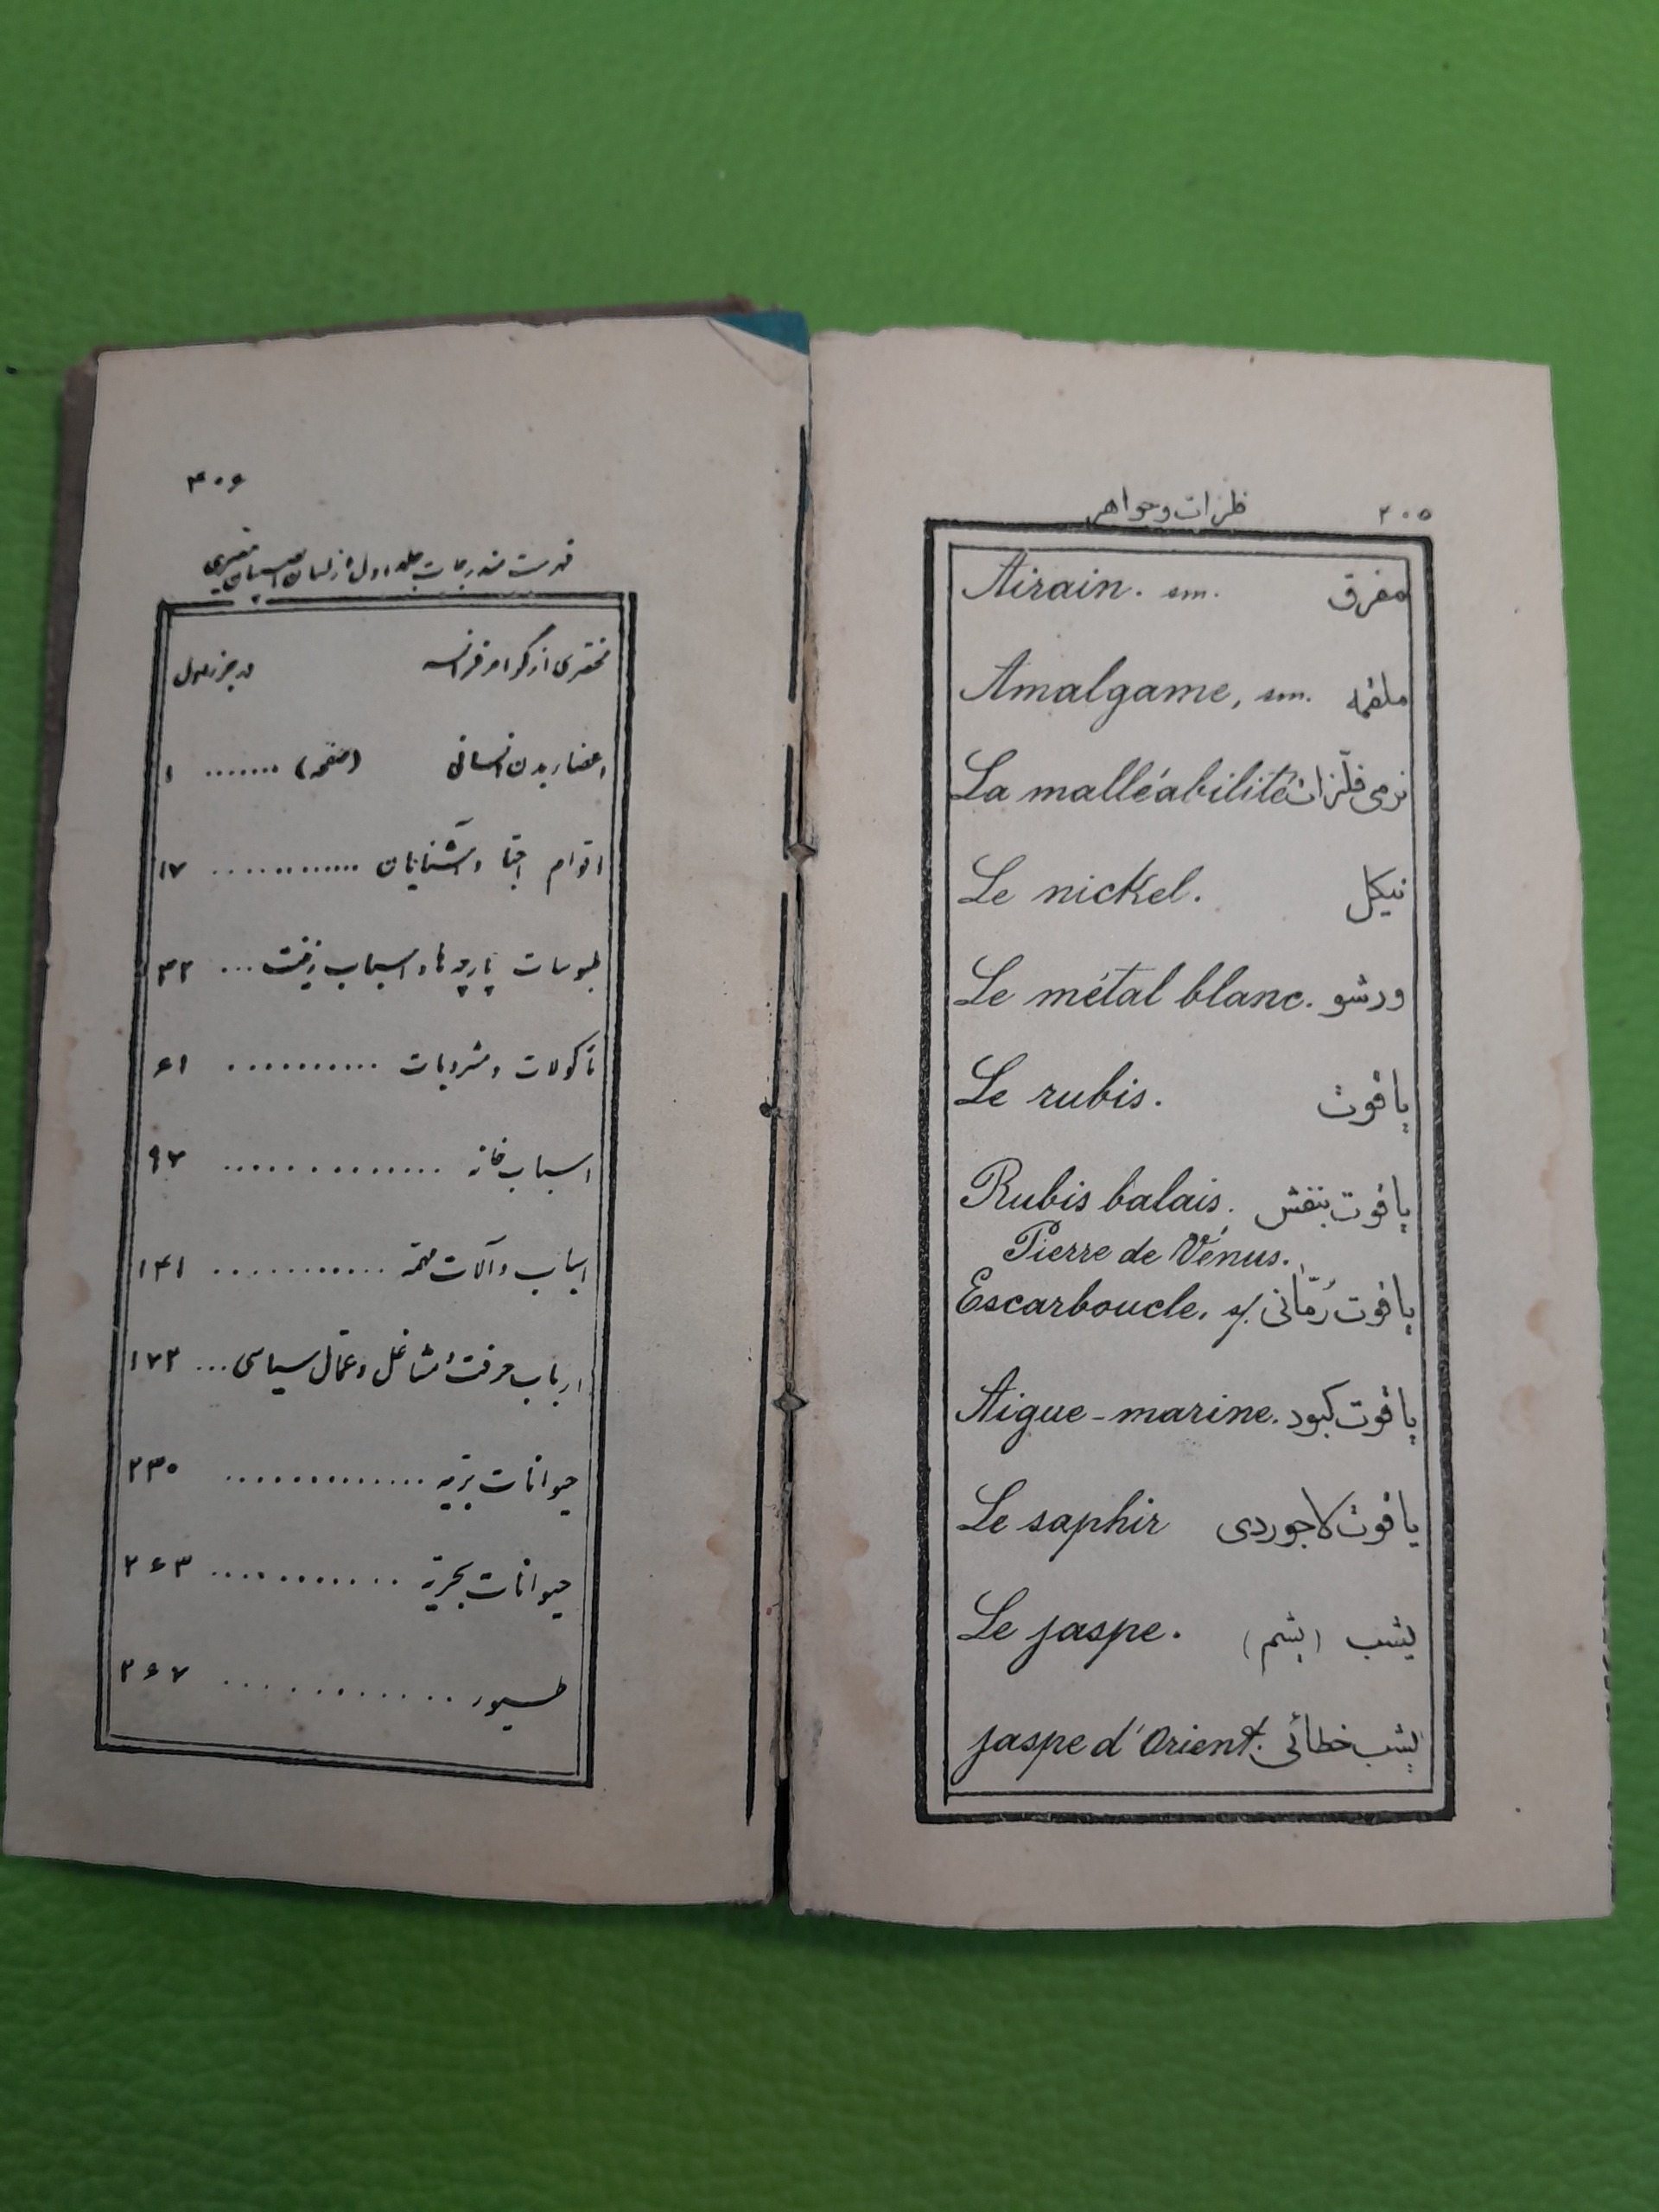 ۲۰۵ فلزات و جواهر
Airain. sm. مفرق
Amalgame, sm. ملغمه
La malléabilité نرمی فلّزات
Le nickel. نیکل
Le métal blanc. ورشو
Le rubis. یاقوت
Rubis balais. یاقوت بنفش
Pierre de Vénus.
Escarboucle, sf. یاقوت رُمّانی
Aigue-marine. یاقوت کبود
Le saphir یاقوت لاجوردی
Le jaspe. یشب (یشم)
jaspe d'Orient. یشب خطائی
۴۰۶
فهرست مندرجات جلد اول از لسان
مختصری از گرامر فرانسه در جزو اول
اعضاء بدن انسانی (صفحه) ....... ۱
اقوام احبّا و آشنایان ............. ۱۷
ملبوسات پارچه‌ها و اسباب زینت ... ۳۲
مأکولات و مشروبات .......... ۶۱
اسباب خانه .............. ۹۲
اسباب و آلات ............ ۱۴۱
ارباب حرفت و مشاغل و عمّال سیاسی ... ۱۷۲
حیوانات برّیه ............. ۲۳۰
حیوانات بحریّه ............ ۲۶۳
طیور ............ ۲۶۷